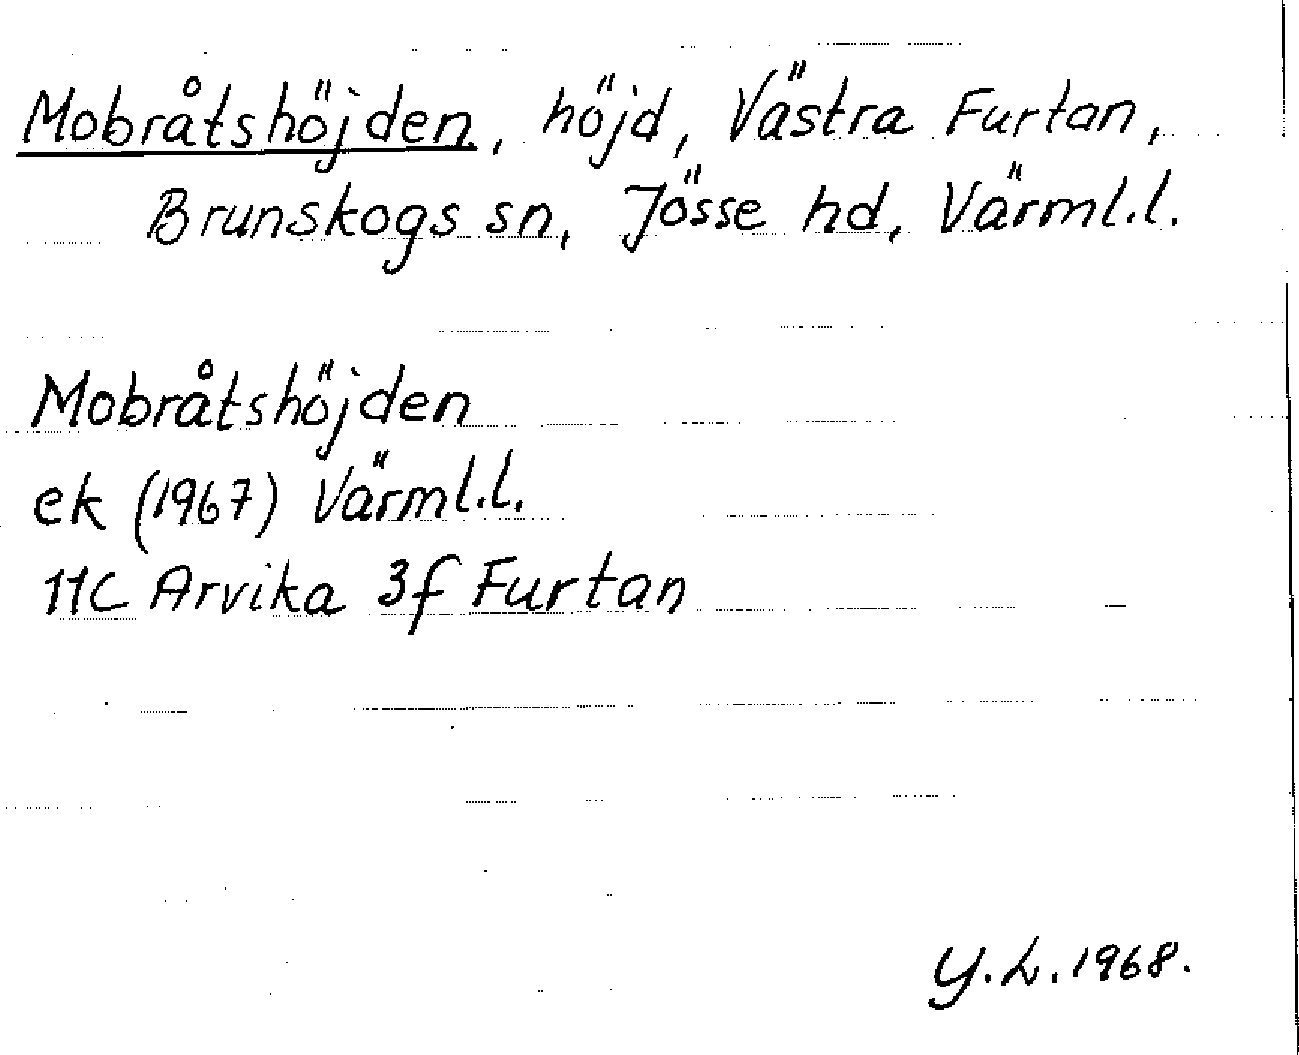 Mobråtshöjden, höjd, Västra Furtan,
Brunskogs sn, Jösse hd, Värml.l.
Mobråtshöjden
ek (1967) Värml.l.
11C Arvika 3f Furtan
Y.L. 1968.